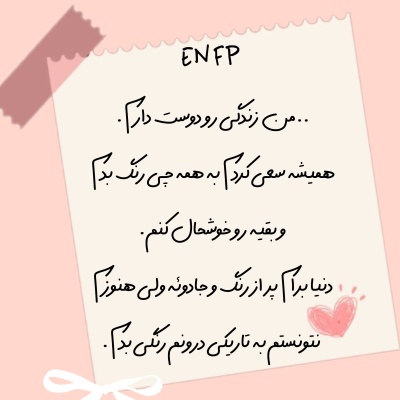 ENFP
..من زندگی رو دوست دارم.
همیشه سعی کردم به همه چی رنگ بدم
و بقیه رو خوشحال کنم.
دنیا برام پر از رنگ و جادوئه ولی هنوزم
نتونستم به تاریکی درونم رنگی بدم.